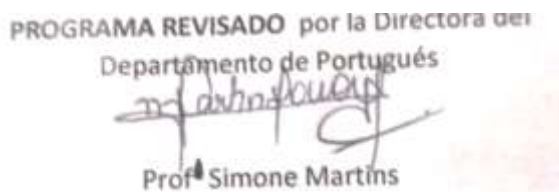 PROGRAMA REVISADO por la Directora del
Departamento de Portugués
Profª Simone Martins